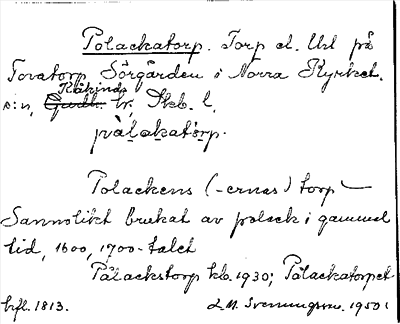 Polackatorp. Torp el. Url på
Tovatorp Sörgården i Norra Kyrket.
Kåkinds
s:n, Gudh. hr, Skb. l.
pàlakatòrp.
Polackens (-ernas) torp
Sannolikt brukat av polack i gammal
tid, 1600, 1700-talet
Pålackstorp kb. 1930; Pålackatorpet
hfl. 1813. L.M. Svenungsson. 1950